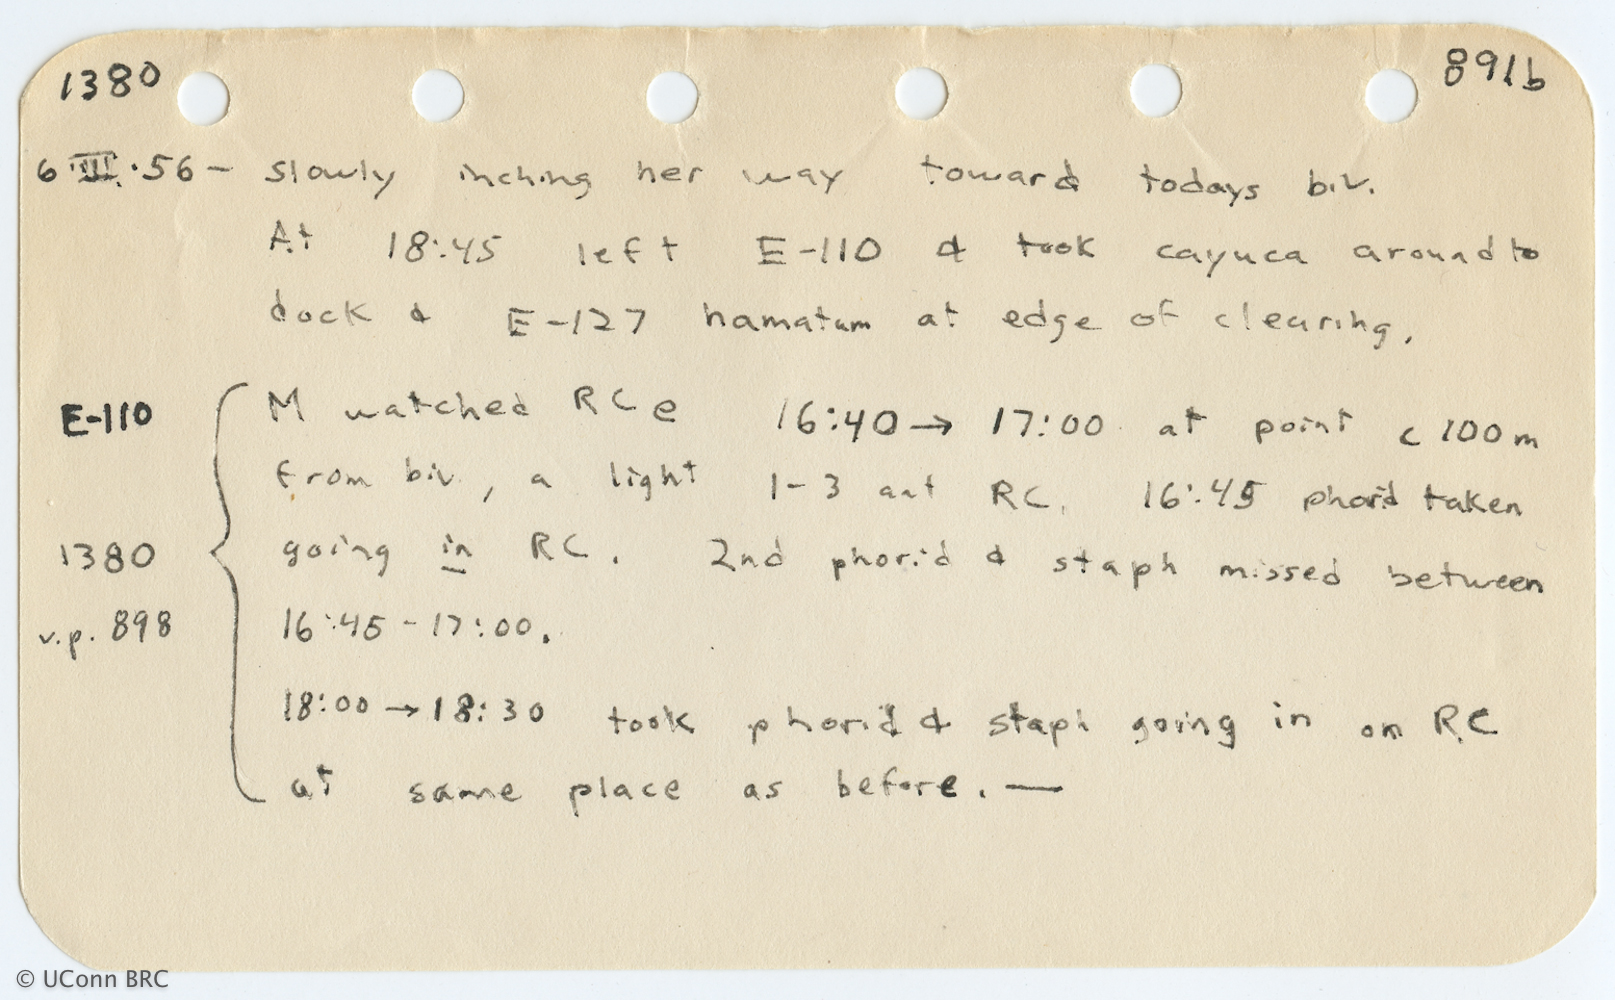 1380 891b
6·III·56 — slowly inching her way toward todays biv.
At 18:45 left E-110 & took cayuca around to
dock & E-127 hamatum at edge of clearing.
E-110 M watched RC e 16:40 → 17:00 at point c 100 m
from biv., a light 1-3 ant RC. 16:45 phorid taken
1380 going in RC. 2nd phorid & staph missed between
v.p. 898 16:45 - 17:00.
18:00 → 18:30 took phorid & staph going in on RC
at same place as before. —
© UConn BRC